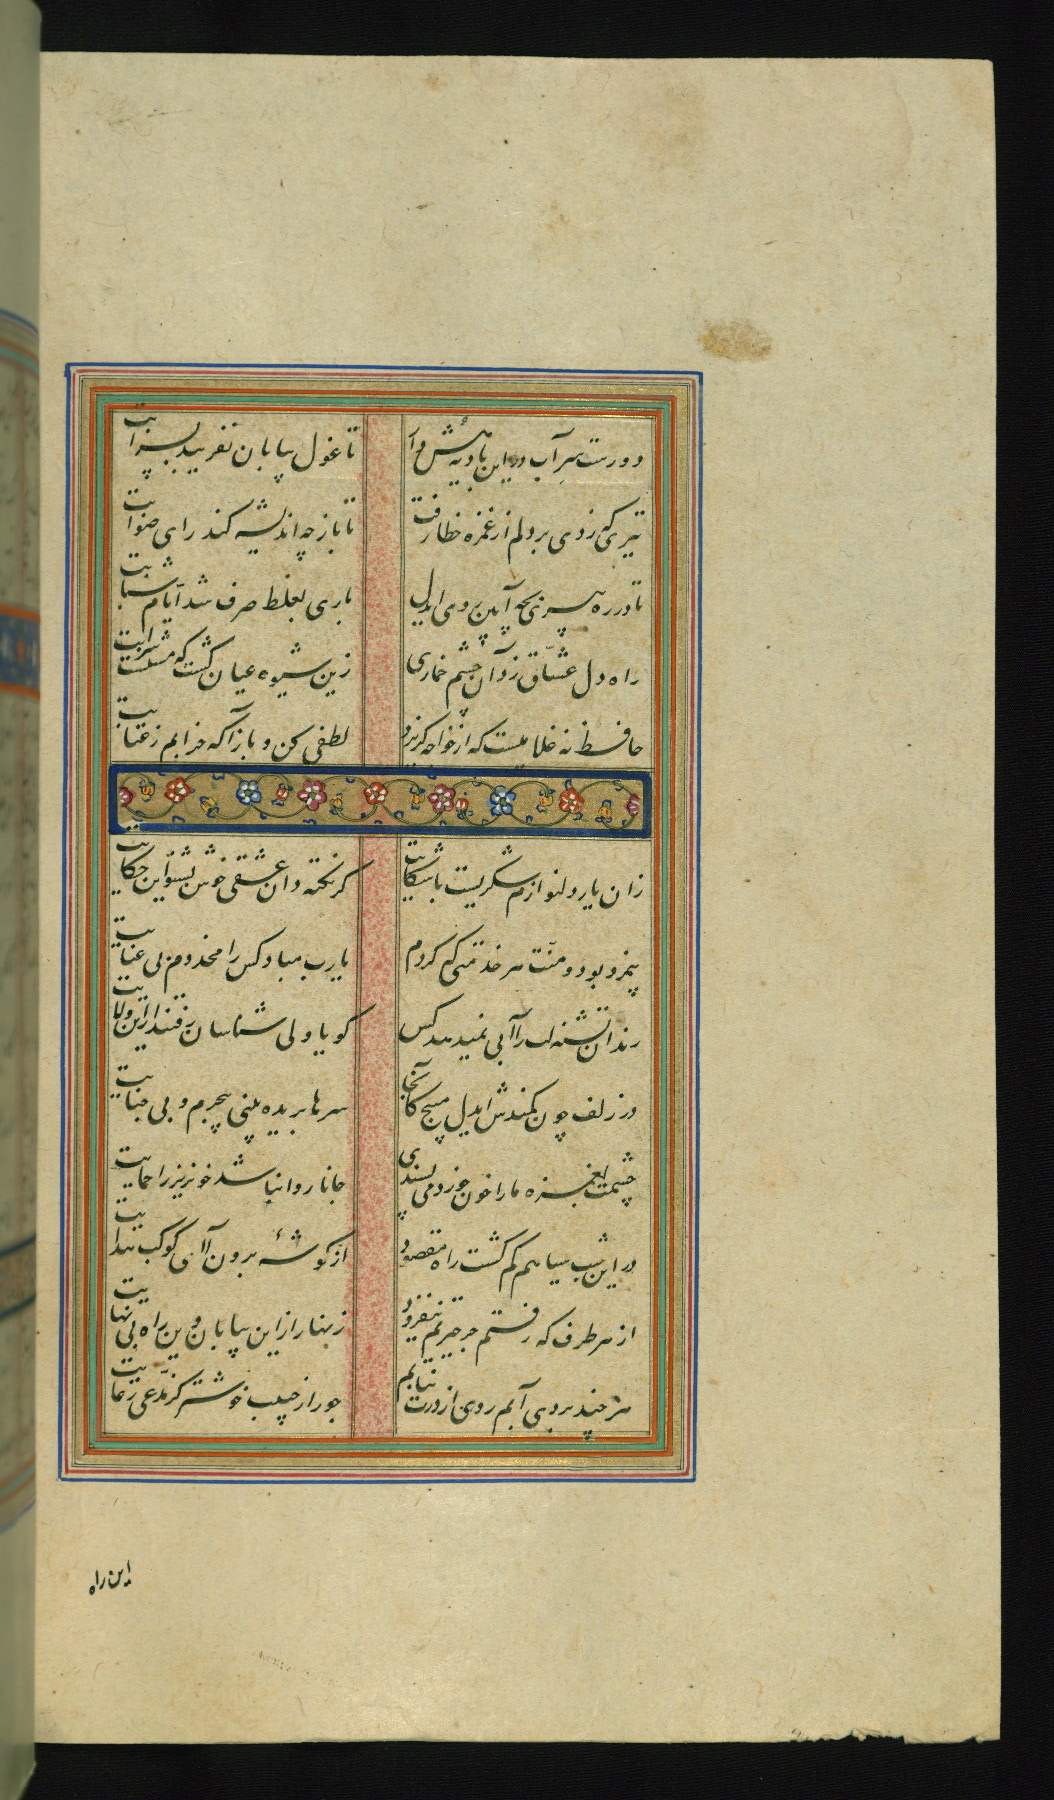 دورست سر آب درین بادیه هش دار
تا غول بیابان نفریبد بسرابت
تیری که زدی بر دلم از غمزه خطا رفت
تا باز چه اندیشه کند رای صوابت
تا در ره پیری بچه آیین بروی ایدل
باری بغلط صرف شد ایام شبابت
راه دل عشاق زد آن چشم خماری
زین شیوه عیان گشت که مستست شرابت
حافظ نه غلامیست که از خواجه گریزد
لطفی کن و بازآ که خرابم ز عتابت
زان یار دلنوازم شکریست با شکایت
گر نکته دان عشقی خوش بشنو این حکایت
بی مزد بود و منت هر خدمتی که کردم
یا رب مباد کس را مخدوم بی عنایت
رندان تشنه لب را آبی نمیدهد کس
گویا ولی شناسان رفتند ازین ولایت
در زلف چون کمندش ایدل مپیچ کانجا
سرها بریده بینی بی جرم و بی جنایت
چشمت بغمزه ما را خون خورد و می پسندی
جانا روا نباشد خونریز را حمایت
در این شب سیاهم گم گشت راه مقصود
از گوشه برون آ ای کوکب هدایت
از هر طرف که رفتم جز حیرتم نیفزود
زنهار ازین بیابان وین راه بی نهایت
هر چند بردی آبم روی از درت نتابم
جور از حبیب خوشتر کز مدعی رعایت
این راه